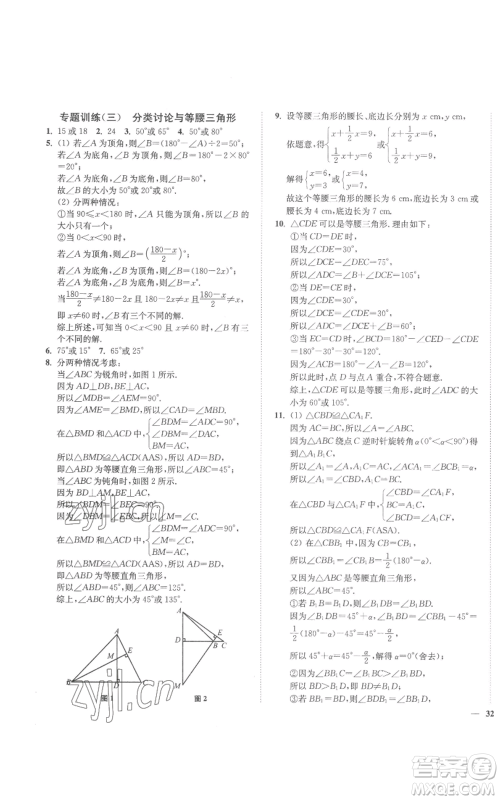 专题训练(三) 分类讨论与等腰三角形
1. 15或18 2. 24 3. 50°或65° 4. 50°或90°
5. (1) 若∠A为顶角,则∠B=(180°-∠A)÷2=50°;
若∠A为底角,∠B为顶角,则∠B=180°-2×80°=20°;
若∠A为底角,∠B为底角,则∠B=80°.
故∠B的大小为50°或20°或80°.
(2) 分两种情况:
①当90≤x<180时,∠A只能为顶角,所以∠B的大小只有一个.
②当0<x<90时,
若∠A为顶角,则∠B=(180-x/2)°;
若∠A为底角,∠B为顶角,则∠B=(180-2x)°;
若∠A为底角,∠B为底角,则∠B=x°.
当180-x/2≠180-2x且180-2x≠x且180-x/2≠x,即x≠60时,∠B有三个不同的解.
综上所述,当0<x<90且x≠60时,∠B有三个不同的解.
6. 75°或15° 7. 65°或25°
8. 分两种情况考虑:
当△ABC为锐角时,如图1所示.
因为AD⊥DB,BE⊥AC,
所以∠MDB=∠AEM=90°.
因为∠AME=∠BMD,所以∠CAD=∠MBD.
在△BMD和△ACD中,{∠MBD=∠CAD, ∠BDM=∠ADC=90°, BM=AC,
所以△BMD≌△ACD(AAS).所以AD=BD.
所以△ABD为等腰直角三角形,所以∠ABC=45°.
当△ABC为钝角时,如图2所示.
因为BD⊥AM,BE⊥AC,
所以∠BDM=∠BEC=90°.
因为∠DBM=∠EBC,所以∠M=∠C.
在△BMD和△ACD中,{∠BDM=∠ADC=90°, ∠M=∠C, BM=AC,
所以△BMD≌△ACD(AAS).所以AD=BD.
所以△ABD为等腰直角三角形,所以∠ABD=45°.
所以∠ABC=135°.
综上,∠ABC的大小为45°或135°.
图1 图2
9. 设等腰三角形的腰长、底边长分别为x cm、y cm.
依题意,得{x+1/2x=9, 1/2x+y=6或{x+1/2x=6, 1/2x+y=9,
解得{x=6, y=3或{x=4, y=7.
故这个等腰三角形的腰长为6 cm,底边长为3 cm或腰长为4 cm,底边长为7 cm.
10. △CDE可以是等腰三角形.理由如下:
①当CD=DE时,
因为∠CDE=30°,
所以∠DCE=∠DEC=75°.
所以∠ADC=∠A+∠DCE=105°.
②当DE=CE时,
因为∠CDE=30°,
所以∠DCE=∠CDE=30°.
所以∠ADC=∠DCE+∠A=60°.
③当EC=CD时,
∠BCD=180°-∠CED-∠CDE=180°-30°-30°=120°.
因为∠ACB=180°-∠A-∠B=120°,
所以此时点D与点A重合,不合题意.
综上,△CDE可以是等腰三角形,此时∠ADC的大小为60°或105°.
11. (1) △CBD≌△CA₁F.理由如下:
因为AC=BC,所以∠A=∠ABC.
因为△ABC绕点C逆时针旋转角α(0°<α<90°)得到△A₁B₁C,
所以∠A₁=∠A,A₁C=AC,∠ACA₁=∠BCB₁=α.
所以∠A₁=∠CBD,A₁C=BC.
在△CBD和△CA₁F中,{∠CBD=∠CA₁F, BC=A₁C, ∠BCD=∠A₁CF,
所以△CBD≌△CA₁F(ASA).
(2) 在△CBB₁中,因为CB=CB₁,
所以∠CBB₁=∠CB₁B=1/2(180°-α).
又因为△ABC是等腰直角三角形,
所以∠ABC=45°.
①若B₁B=B₁D,则∠B₁DB=∠B₁BD.
因为∠B₁DB=45°+α,∠B₁BD=∠CBB₁-45°=1/2(180°-α)-45°=45°-α/2,
所以45°+α=45°-α/2.所以α=0°(舍去);
②因为∠BB₁C=∠B₁BC>∠B₁BD,
所以BD>B₁D,即BD≠B₁D;
32